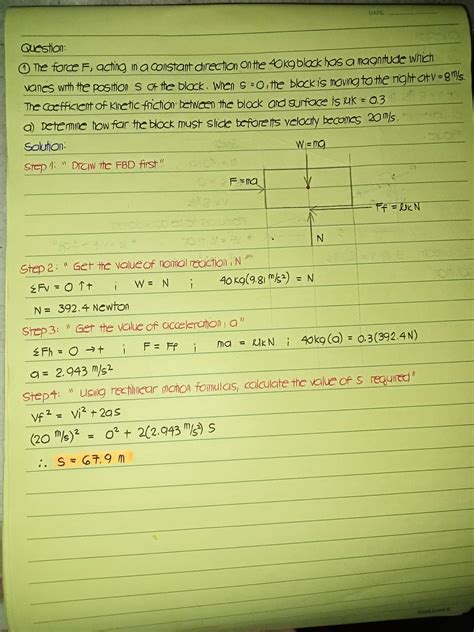 DATE
Question:
① The force F, acting in a constant direction on the 40kg block has a magnitude which
varies with the position S of the block. When S=0, the block is moving to the right at V=8m/s.
The Coefficient of kinetic friction between the block and surface is μk = 0.3
a) Determine how far the block must slide before its velocity becomes 20m/s.
Solution:
Step 1: " Draw the FBD first"
W=mg
F=ma
Ff = μkN
N
Step 2: " Get the value of normal reaction, N"
ΣFv = 0 ↑+ ; W = N ; 40kg(9.81 m/s²) = N
N = 392.4 Newton
Step 3: " Get the value of acceleration, a"
ΣFh = 0 →+ ; F = Ff ; ma = μkN ; 40kg(a) = 0.3(392.4N)
a = 2.943 m/s²
Step 4: " Using rectilinear motion formulas, calculate the value of S required"
Vf² = Vi² + 2aS
(20 m/s)² = 0² + 2(2.943 m/s²) S
∴ S = 67.9 m